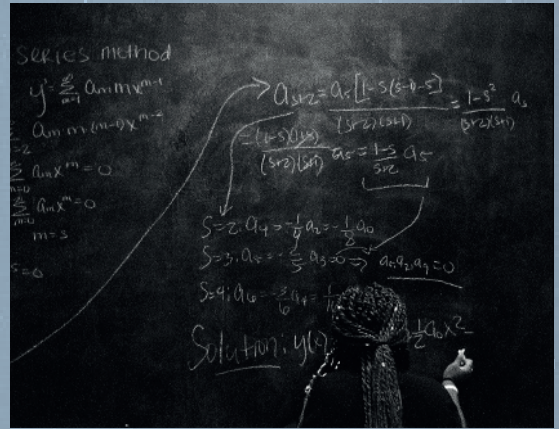 series method
y' = ∑ aₘ m xᵐ⁻¹
aₘ m (m-1) xᵐ⁻²
aₘ xᵐ = 0
∑ aₘ xᵐ = 0
m = s
= 0
aₛ₊₂ = aₛ [1-s(s-1)-s] / (s+2)(s+1) = 1-s² / (s+2)(s+1) aₛ
= (1-s)(1+s) / (s+2)(s+1) aₛ = 1-s / s+2 aₛ
S=2: a₄ = -1/4 a₂ = -1/8 a₀
S=3: a₅ = -2/5 a₃ = 0 ⇒ a₅, a₇, a₉ = 0
S=4: a₆ = -3/6 a₄ = 1/
Solution: y(
1/2 a₀ x²